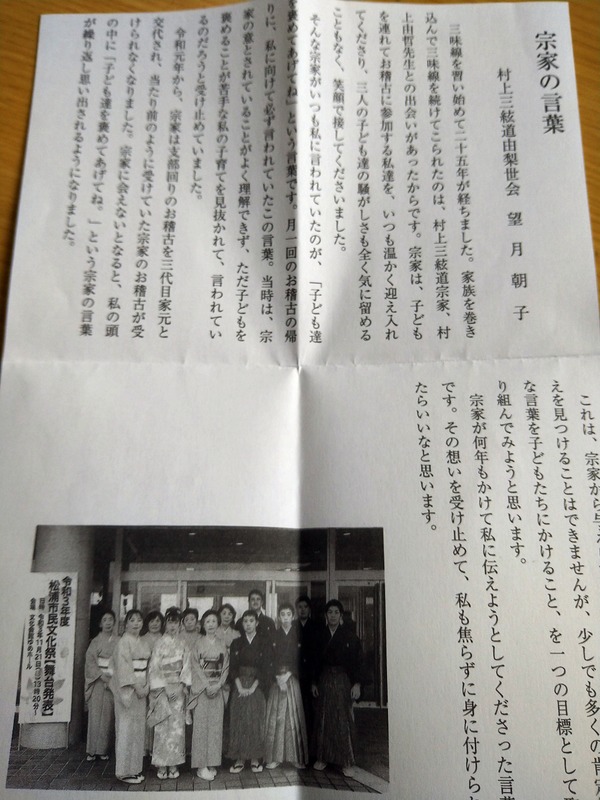 宗家の言葉
村上三絃道由梨世会 望月朝子
三味線を習い始めて二十五年が経ちました。家族を巻き
込んで三味線を続けてこられたのは、村上三絃道宗家、村
上由哲先生との出会いがあったからです。宗家は、子ども
を連れてお稽古に参加する私達を、いつも温かく迎え入れ
てくださり、三人の子ども達の騒がしさも全く気に留める
こともなく、笑顔で接してくださいました。
そんな宗家がいつも私に言われていたのが、「子ども達
を褒めてあげてね」という言葉です。月一回のお稽古の帰
りに、私に向けて必ず言われていたこの言葉。当時は、宗
家の意とされていることがよく理解できず、ただ子どもを
褒めることが苦手な私の子育てを見抜かれて、言われてい
るのだろうと受け止めていました。
令和元年から、宗家は支部回りのお稽古を三代目家元と
交代され、当たり前のように受けていた宗家のお稽古が受
けられなくなりました。宗家に会えないとなると、私の頭
の中に「子ども達を褒めてあげてね。」という宗家の言葉
が繰り返し思い出されるようになりました。
これは、宗家から
えを見つけることはできませんが、少しでも多くの肯定
な言葉を子どもたちにかけること、を一つの目標として
り組んでみようと思います。
宗家が何年もかけて私に伝えようとしてくださった言葉
です。その想いを受け止めて、私も焦らずに身に付けら
たらいいなと思います。
令和3年度
松浦市民文化祭【舞台発表】
日時 令和3年11月21日(日)13時20分~
会場 文化会館ゆめホール